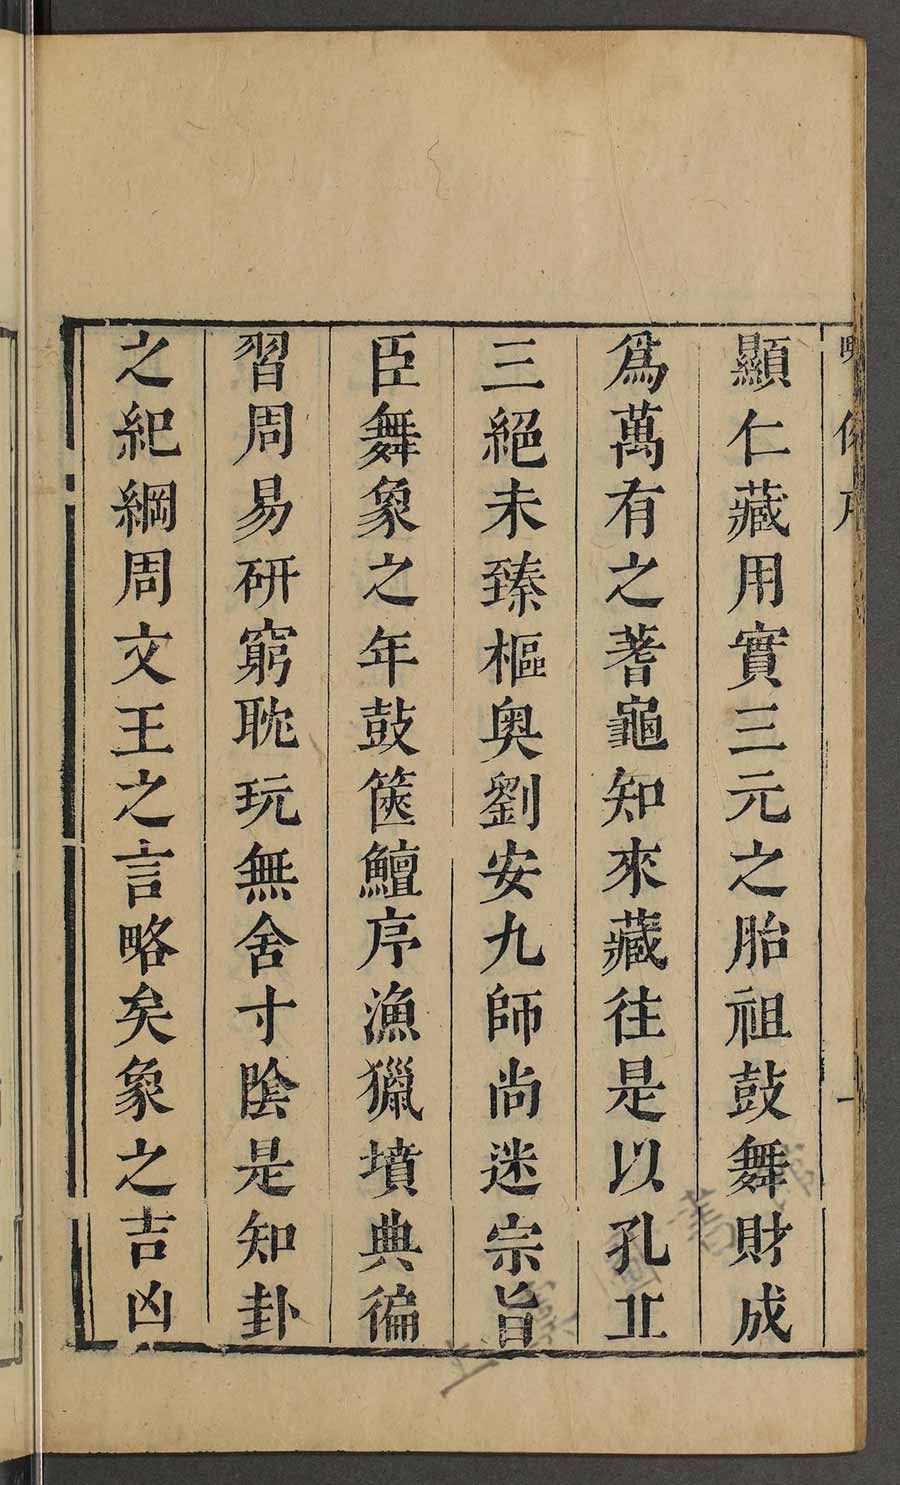 顯仁藏用實三元之胎祖鼓舞財成
爲萬有之蓍龜知來藏往是以孔丠
三絕未臻樞奧劉安九師尚迷宗旨
臣舞象之年鼓篋鱣序漁獵墳典徧
習周易研窮耽玩無舍寸陰是知卦
之紀綱周文王之言略矣象之吉凶